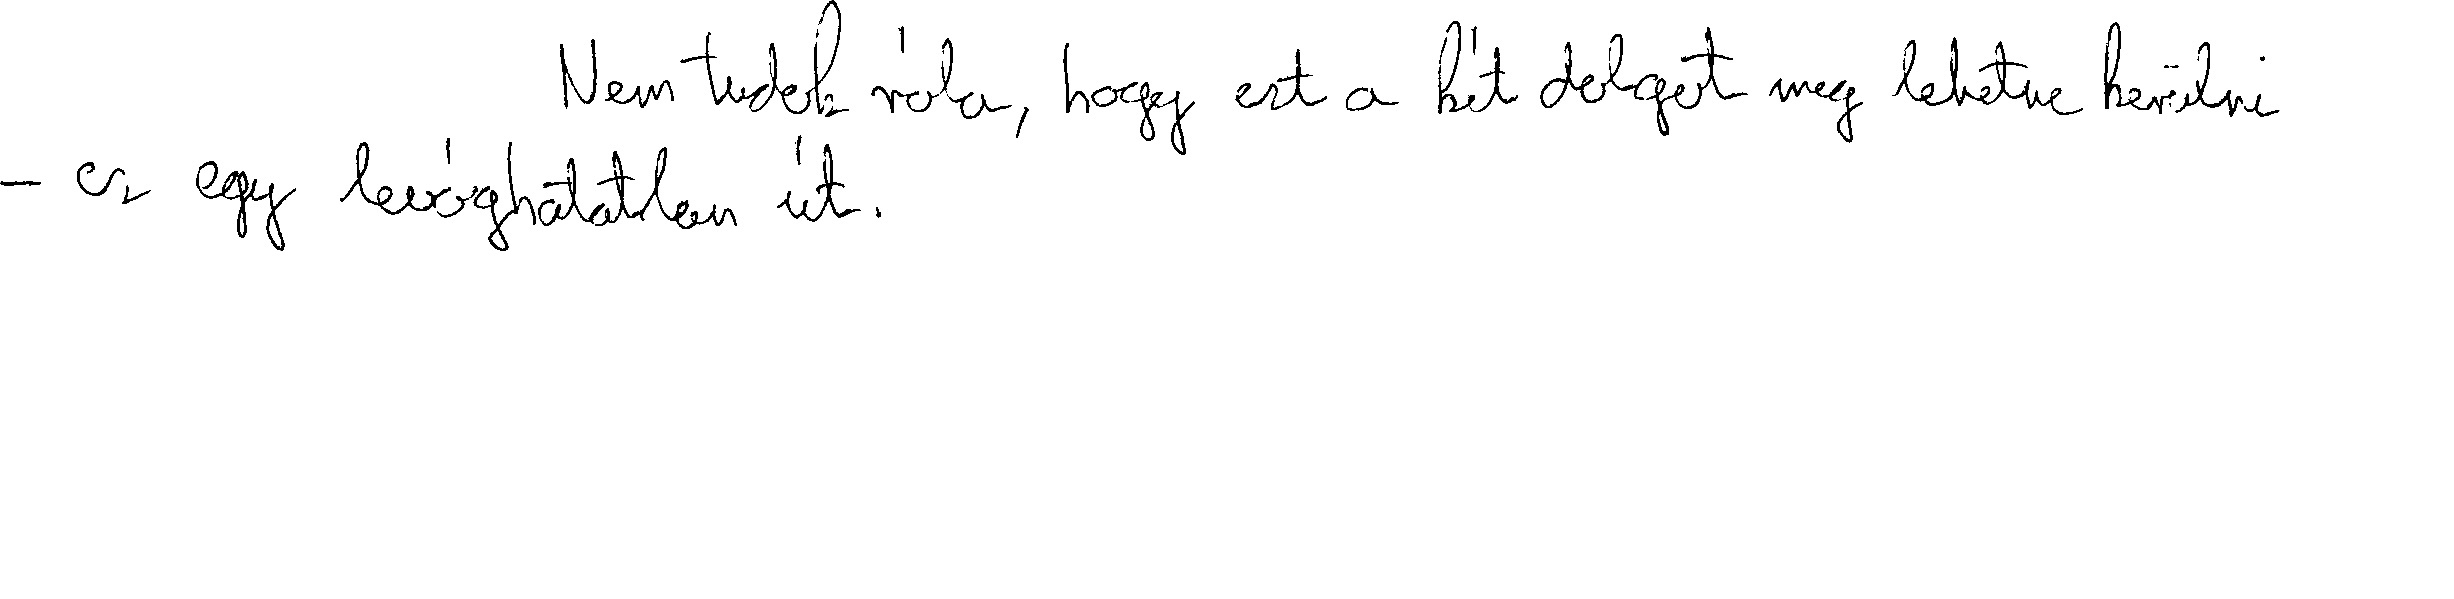 Nem tudok róla, hogy ezt a két dolgot meg lehetne kerülni
– ez egy levághatatlan út.